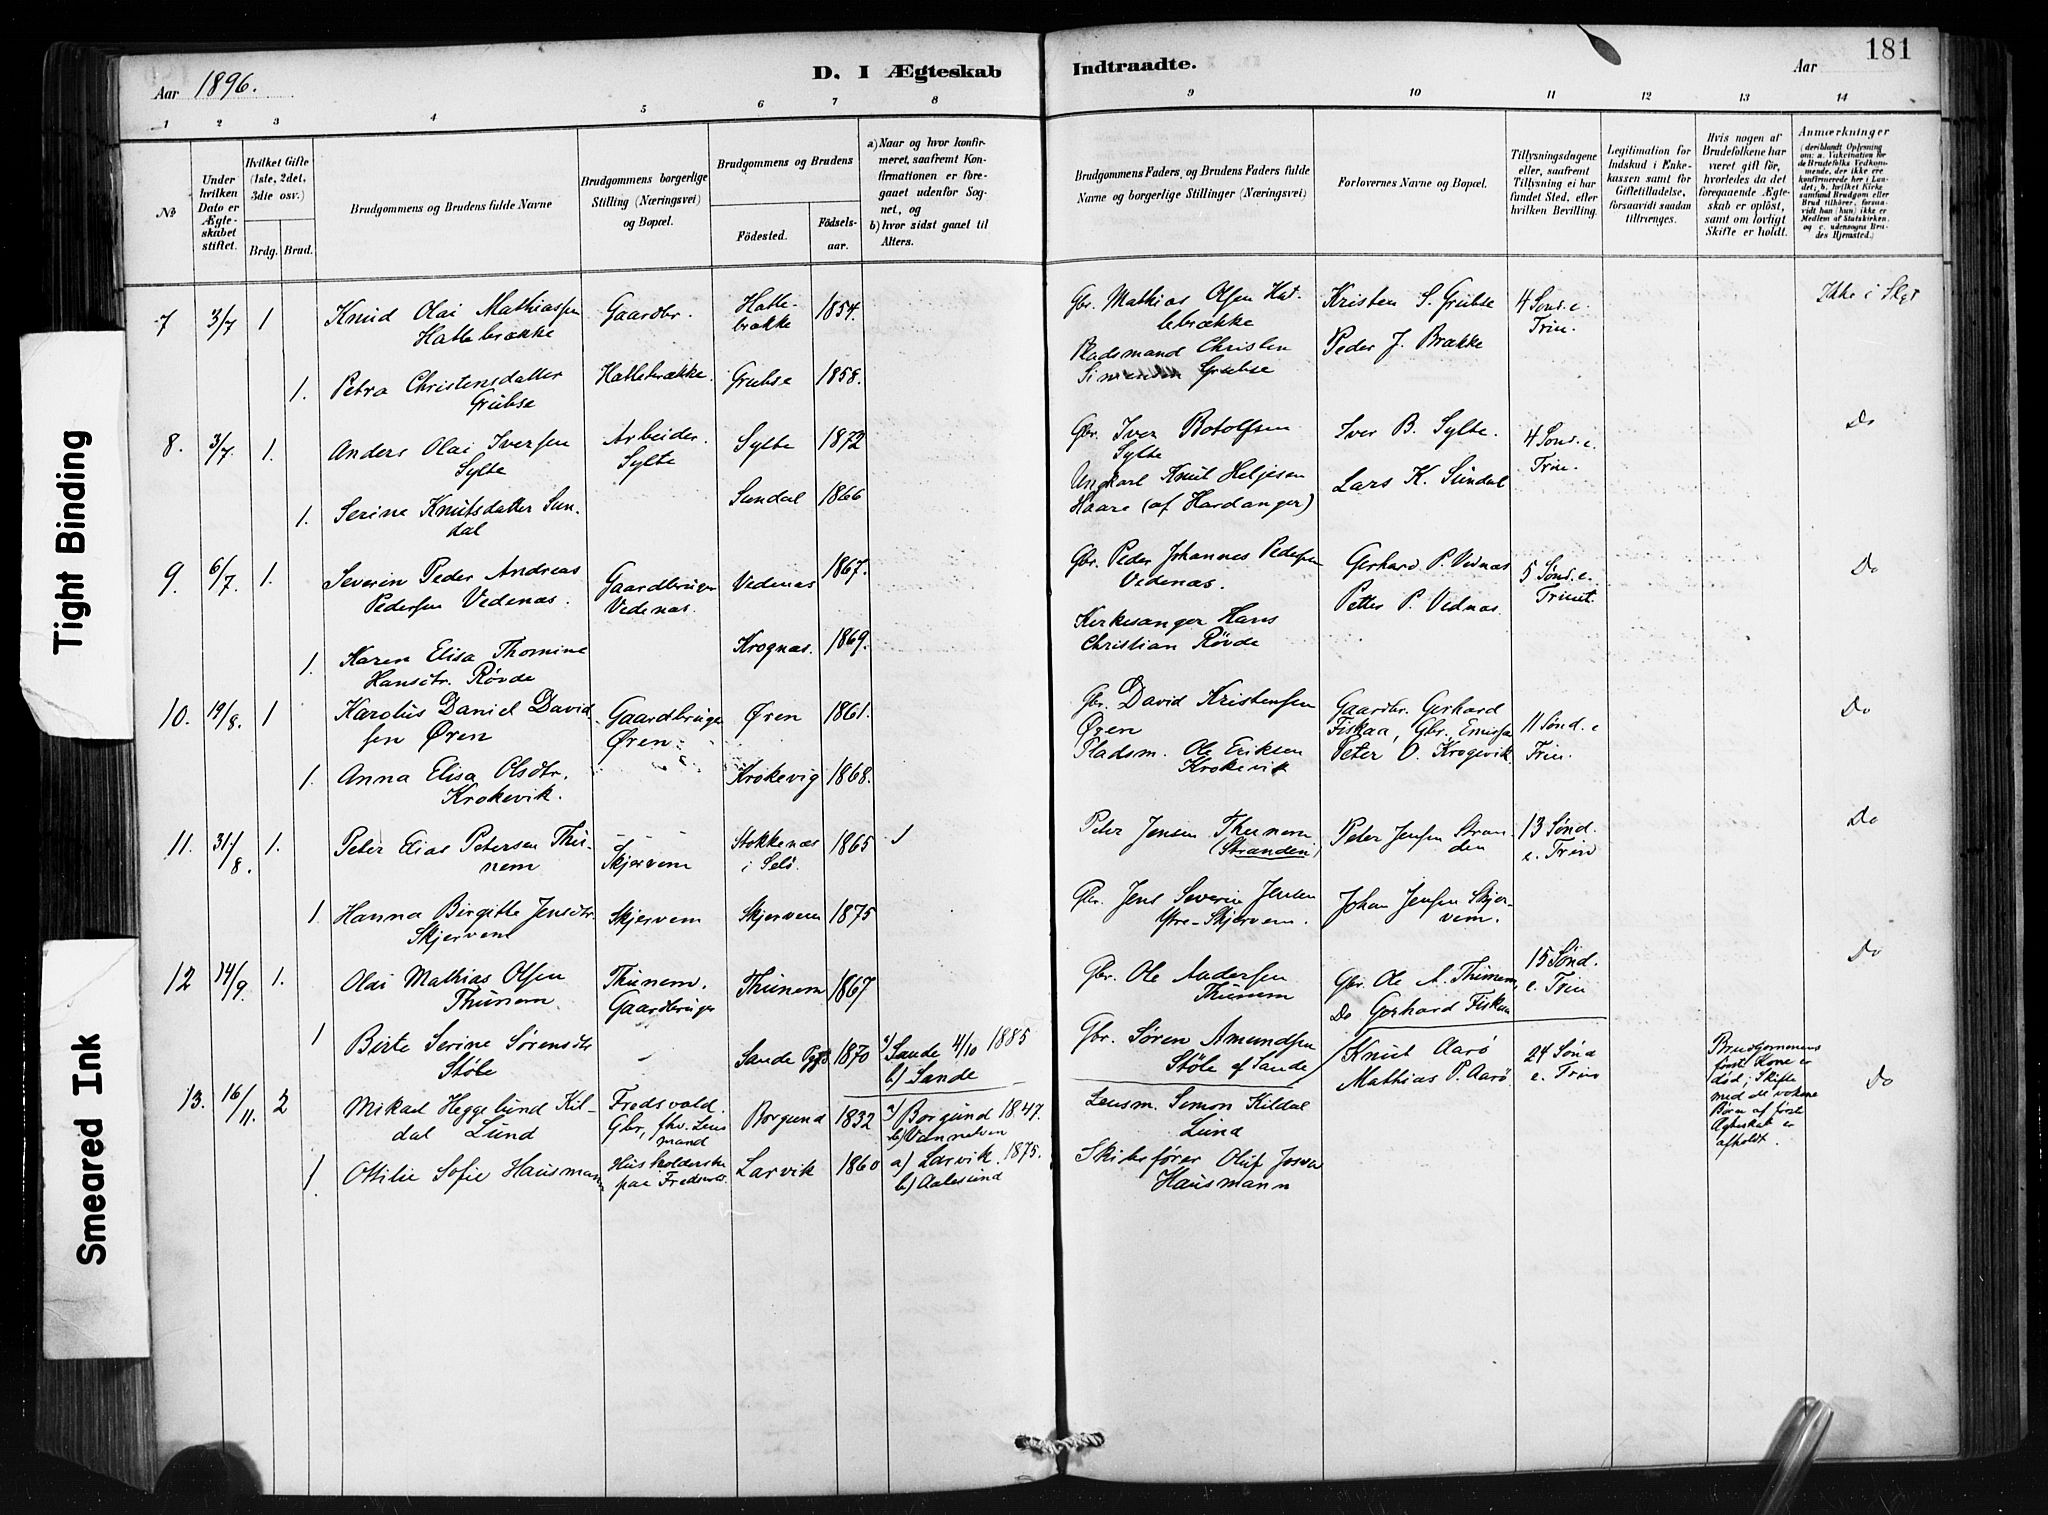 181
Aar 1896.
D. I Ægteskab Indtraadte.
Aar
1 2 3 4 5 6 7 8 9 10 11 12 13 14
№
Under hvilken Dato er Ægteskabet stiftet.
Hvilket Gifte (1ste, 2det, 3die osv.)
Brdg. Brud.
Brudgommens og Brudens fulde Navne
Brudgommens borgerlige Stilling (Næringsvei) og Bopæl.
Brudgommens og Brudens
Födested. Födselsaar.
a) Naar og hvor konfirmeret, saafremt Konfirmationen er foregaaet udenfor Sognet, og
b) hvor sidst gaaet til Alters.
Brudgommens Faders, og Brudens Faders fulde Navne og borgerlige Stillinger (Næringsvei)
Forlovernes Navne og Bopæl.
Tillysningsdagene eller, saafremt Tillysning ei har fundet Sted, efter hvilken Bevilling.
Legitimation for Indskud i Enkekassen samt for Giftetilladelse, forsaavidt saadan tiltrænges.
Hvis nogen af Brudefolkene har været gift för, hvorledes da det foregaaende Ægteskab er oplöst, samt om lovligt Skifte er holdt.
Anmærkninger (deriblandt Oplysning om: a. Vakcination for de Brudefolks Vedkommende, der ikke ere konfirmerede her i Landet; b. hvilket Kirkesamfund Brudgom eller Brud tilhörer, forsaavidt han (hun) ikke er Medlem af Statskirken, og c. udensogns Brudes Hjemsted.)
7 3/7 1 Knud Olai Mathiassen Gaardbr. Hatte- 1854. Gbr. Mathias Olsen Hat- Kristen S. Grubse 4 Sönd. e. Ikke i Slgt
Hattebrække brække lebrække Peder J. Brække Trin.
1. Petra Christensdatter Hattebrække. Grubse 1858. Pladsmand Christen
Grubse Grubse
8. 3/7. 1. Anders Olai Iversen Arbeider. Sylte 1872 Gbr. Iver Botolfsen Iver B. Sylte. 4 Sönd. e. Do
Sylte Sylte Sylte Trin.
1. Serine Knutsdatter Sun- Sundal 1866 Ungkarl Knut Heljesen Lars K. Sundal
dal Haare (af Hardanger)
9. 6/7. 1. Severin Peder Andreas Gaardbruger Vedenæs 1867. Gbr. Peder Johannes Pedersen Gerhard P. Vednæs 5 Sønd. e. Do
Pedersen Vedenæs. Vedenæs. Vedenæs. Petter P. Vednæs. Trinit.
1. Karen Elisa Thomine Krognæs. 1869. Kirkesanger Hans
Hansdtr. Røvde Christian Røvde
10. 19/8. 1 Karolus Daniel David- Gaardbruger Øren 1861. Gbr. David Kristensen Gaardbr. Gerhard 11 Sönd. e Do
sen Øren Øren. Øren Fiskaa, Gbr. Trin.
1. Anna Elisa Olsdtr. Krokevig 1868. Pladsm. Ole Eriksen Peter O. Krogevik
Krokevik. Krokevik
11. 31/8. 1. Peter Elias Petersen Thu- Skjervem Stokkenæs 1865 Peter Jensen Thunem Peter Jensen Stran- 13 Sønd. Do
nem i Selö. (Stranden) den e. Trin
1. Hanna Birgitte Jensdtr. Skjervem Skjervem 1875 Gbr. Jens Severin Jensen Johan Jensen Skjer-
Skjervem Ytre-Skjervem. vem.
12 14/9. 1. Olai Mathias Olsen Thunem. Thunem 1867 Gbr. Ole Andersen Gbr. Ole A. Thunem, 15 Sønd. Do
Thunem Gaardbruger Thunem Do Gerhard Fiskaa e. Trin
1 Birte Serine Sörensdtr Sande Pgd 1870 a) Sande 4/10 1885 Gbr. Søren Amundsen
Støle b) Sande Støle af Sande
13. 16/11. 2 Mikael Heggelund Kil- Fredsvold. Borgund 1832 a) Borgund 1847. Lensm. Simon Kildal Knut Aarö 24 Sønd Do
dal Lund Gbr., fhv. Lens b) Vannelven Lund Mathias P. Aarö e. Trin
mand
Brudgommens först Kone er död; Skifte med de voksne Børn af först Ægteskab er afholdt.
1. Ottilie Sofie Hausmann Husholderske Larvik 1860 a) Larvik. 1875. Skibsfører Oluf Josva
paa Fredsvol. b) Aalesund Hausmann
Tight Binding
Smeared Ink